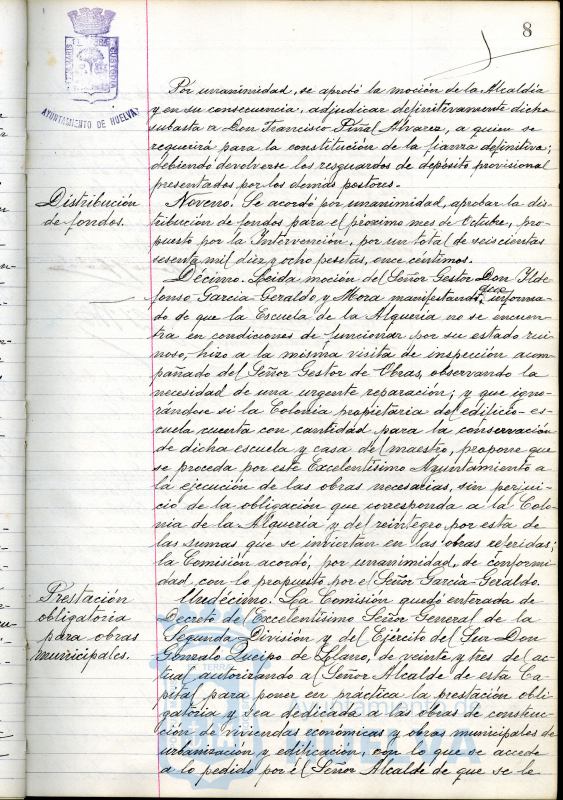 8
AYUNTAMIENTO DE HUELVA
Por unanimidad, se aprobó la moción de la Alcaldía
y en su consecuencia, adjudicar definitivamente dicha
subasta a Don Francisco Piñal Alvarez, a quien se
requerirá para la constitución de la fianza definitiva;
debiendo devolverse los resguardos de depósito provisional
presentados por los demás postores.-
Distribución
de fondos.
Noveno. Se acordó por unanimidad, aprobar la dis-
tribución de fondos para el próximo mes de Octubre, pro-
puesto por la Intervención, por un total de seiscientas
sesenta mil diez y ocho pesetas, once céntimos.
Décimo. Leida moción del Señor Gestor Don Ilde
fonso García Geraldo y Mora manifestando que informa-
do de que la Escuela de la Alquería no se encuen-
tra en condiciones de funcionar por su estado rui
noso, hizo a la misma visita de inspección acom-
pañado del Señor Gestor de Obras, observando la
necesidad de una urgente reparación; y que igno-
rándose si la Colonia propietaria del edificio-es-
cuela cuenta con cantidad para la conservación
de dicha escuela y casa del maestro, propone que
se proceda por este Excelentísimo Ayuntamiento a
la ejecución de las obras necesarias, sin perjui-
cio de la obligación que corresponda a la Colo-
nia de la Alquería y del reintegro por esta de
las sumas que se inviertan en las obras referidas;
la Comisión acordó, por unanimidad, de conformi-
dad con lo propuesto por el Señor García-Geraldo.
Prestación
obligatoria
para obras
municipales.
Undécimo. La Comisión quedó enterada de
Decreto del Excelentísimo Señor General de la
Segunda División y del Ejército del Sur Don
Gonzalo Queipo de Llano, de veinte y tres del ac-
tual autorizando al Señor Alcalde de esta Ca-
pital para poner en práctica la prestación obli-
gatoria y sea dedicada a las obras de construc-
ción de viviendas económicas y obras municipales de
urbanización y edificación, con lo que se accede
a lo pedido por el Señor Alcalde de que se le
Ayuntamiento de
HUELVA